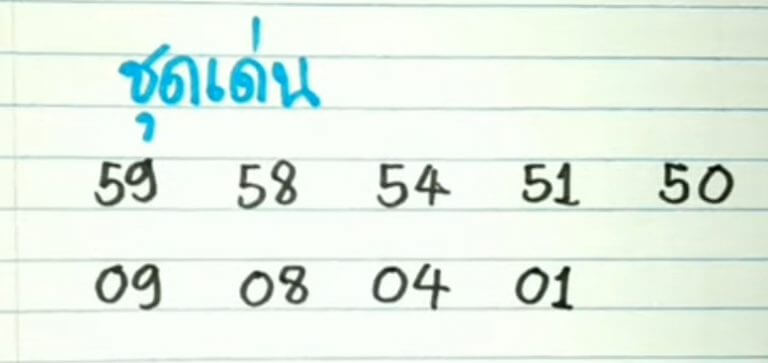 ชุดเด่น
59 58 54 51 50
09 08 04 01